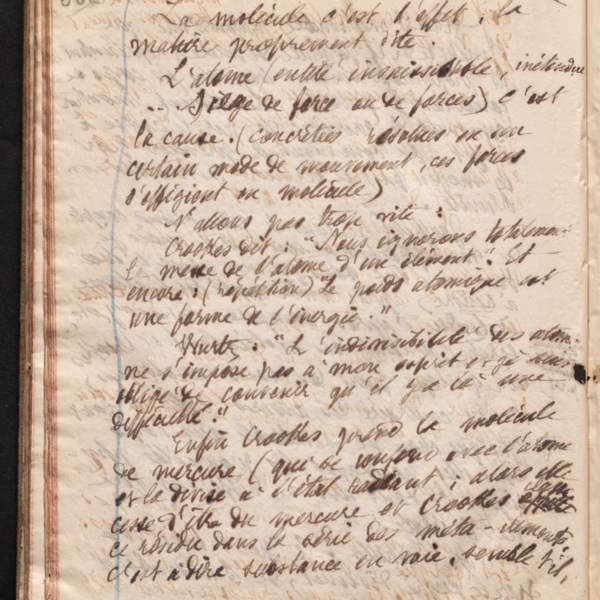 La molécule c'est l'effet, la
matière proprement dite.
L'atome (entité insaisissable, inétendue
.. Siège de force ou de forces) c'est
la cause. (concrétées résolues en un
certain mode de mouvement, ces forces
s'effigient en molécule)
N'allons pas trop vite :
Crookes dit : "Nous ignorons totalement
la masse de l'atome d'un élément. Et
encore : (répétition) Le poids atomique est
une forme de l'énergie."
Wurtz : "L'indivisibilité des atomes
ne s'impose pas à mon esprit et je suis
obligé de convenir qu'il y a là une
difficulté."
Enfin Crookes prend la molécule
de mercure (qui se confond avec l'atome
et la divise à l'état radiant ; alors elle
cesse d'être du mercure et Crookes
ce résidu dans la série des méta-éléments
c'est à dire substance en voie, semble t'il,